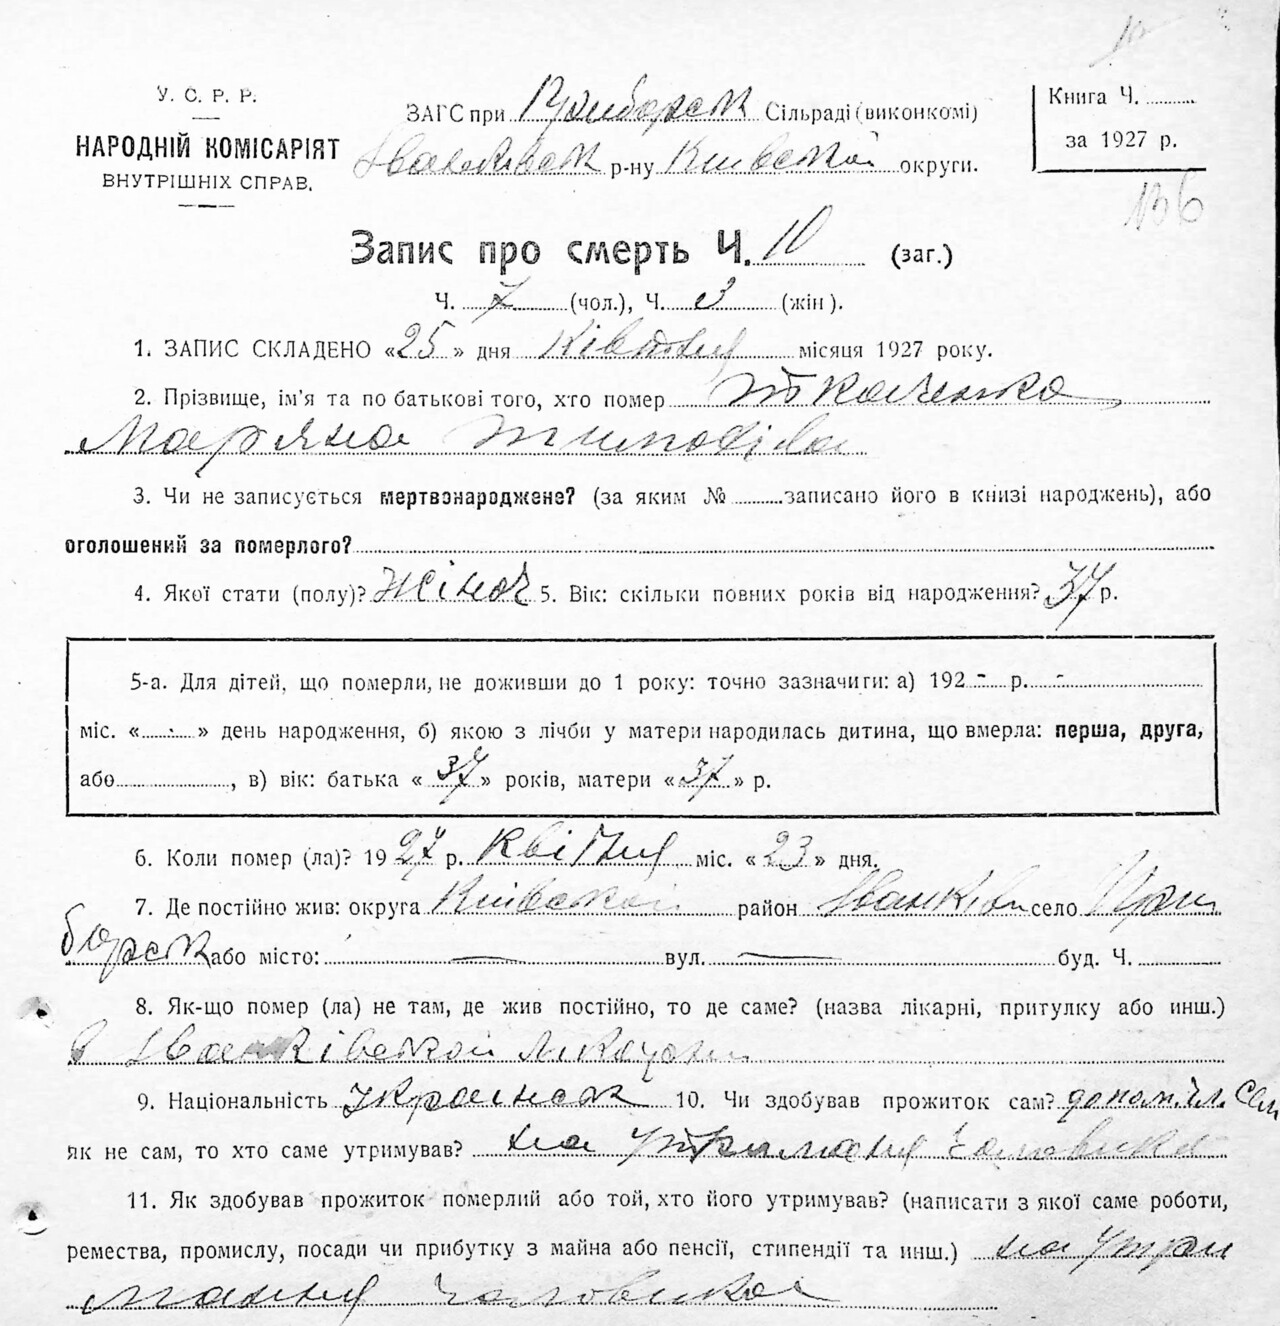 У. С. Р. Р.
НАРОДНІЙ КОМІСАРІЯТ
ВНУТРІШНІХ СПРАВ.
ЗАГС при Приборск Сільраді (виконкомі)
Іванківск р-ну Київскои округи.
Книга Ч. ..........
за 1927 р.
136
Запис про смерть Ч. 10 (заг.)
Ч. 7 (чол.), Ч. 3 (жін).
1. ЗАПИС СКЛАДЕНО «25» дня Квітня місяця 1927 року.
2. Прізвище, ім'я та по батькові того, хто помер Ткаченко
Мар'яна
3. Чи не записується мертвонароджене? (за яким № .......... записано його в книзі народжень), або
оголошений за померлого?
4. Якої стати (полу)? Жіноч 5. Вік: скільки повних років від народження? 37 р.
5-а. Для дітей, що померли, не доживши до 1 року: точно зазначити: а) 192 - р. -
міс. «......» день народження, б) якою з лічби у матери народилась дитина, що вмерла: перша, друга,
або ............, в) вік: батька «37» років, матери «37» р.
6. Коли помер (ла)? 1927 р. Квітня міс. «23» дня.
7. Де постійно жив: округа Київскои район Іванків село При
борск або місто: — вул. — буд. Ч. ..........
8. Як-що помер (ла) не там, де жив постійно, то де саме? (назва лікарні, притулку або инш.)
в Іванківской лікарни
9. Національність Украінск 10. Чи здобував прожиток сам?
як не сам, то хто саме утримував? на утриманя чоловика
11. Як здобував прожиток померлий або той, хто його утримував? (написати з якої саме роботи,
ремества, промислу, посади чи прибутку з майна або пенсії, стипендії та инш.) на утри
мання чоловика